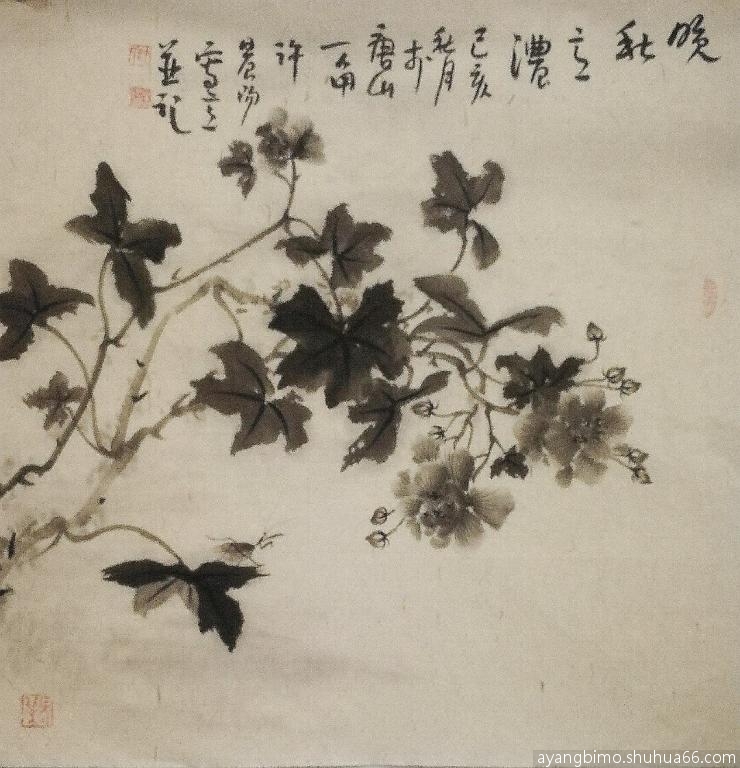 晚
秋
意
濃
己亥
秋月
於
唐山
一角
許
晨陽
寫意
並記
ayangbimo.shuhua66.com